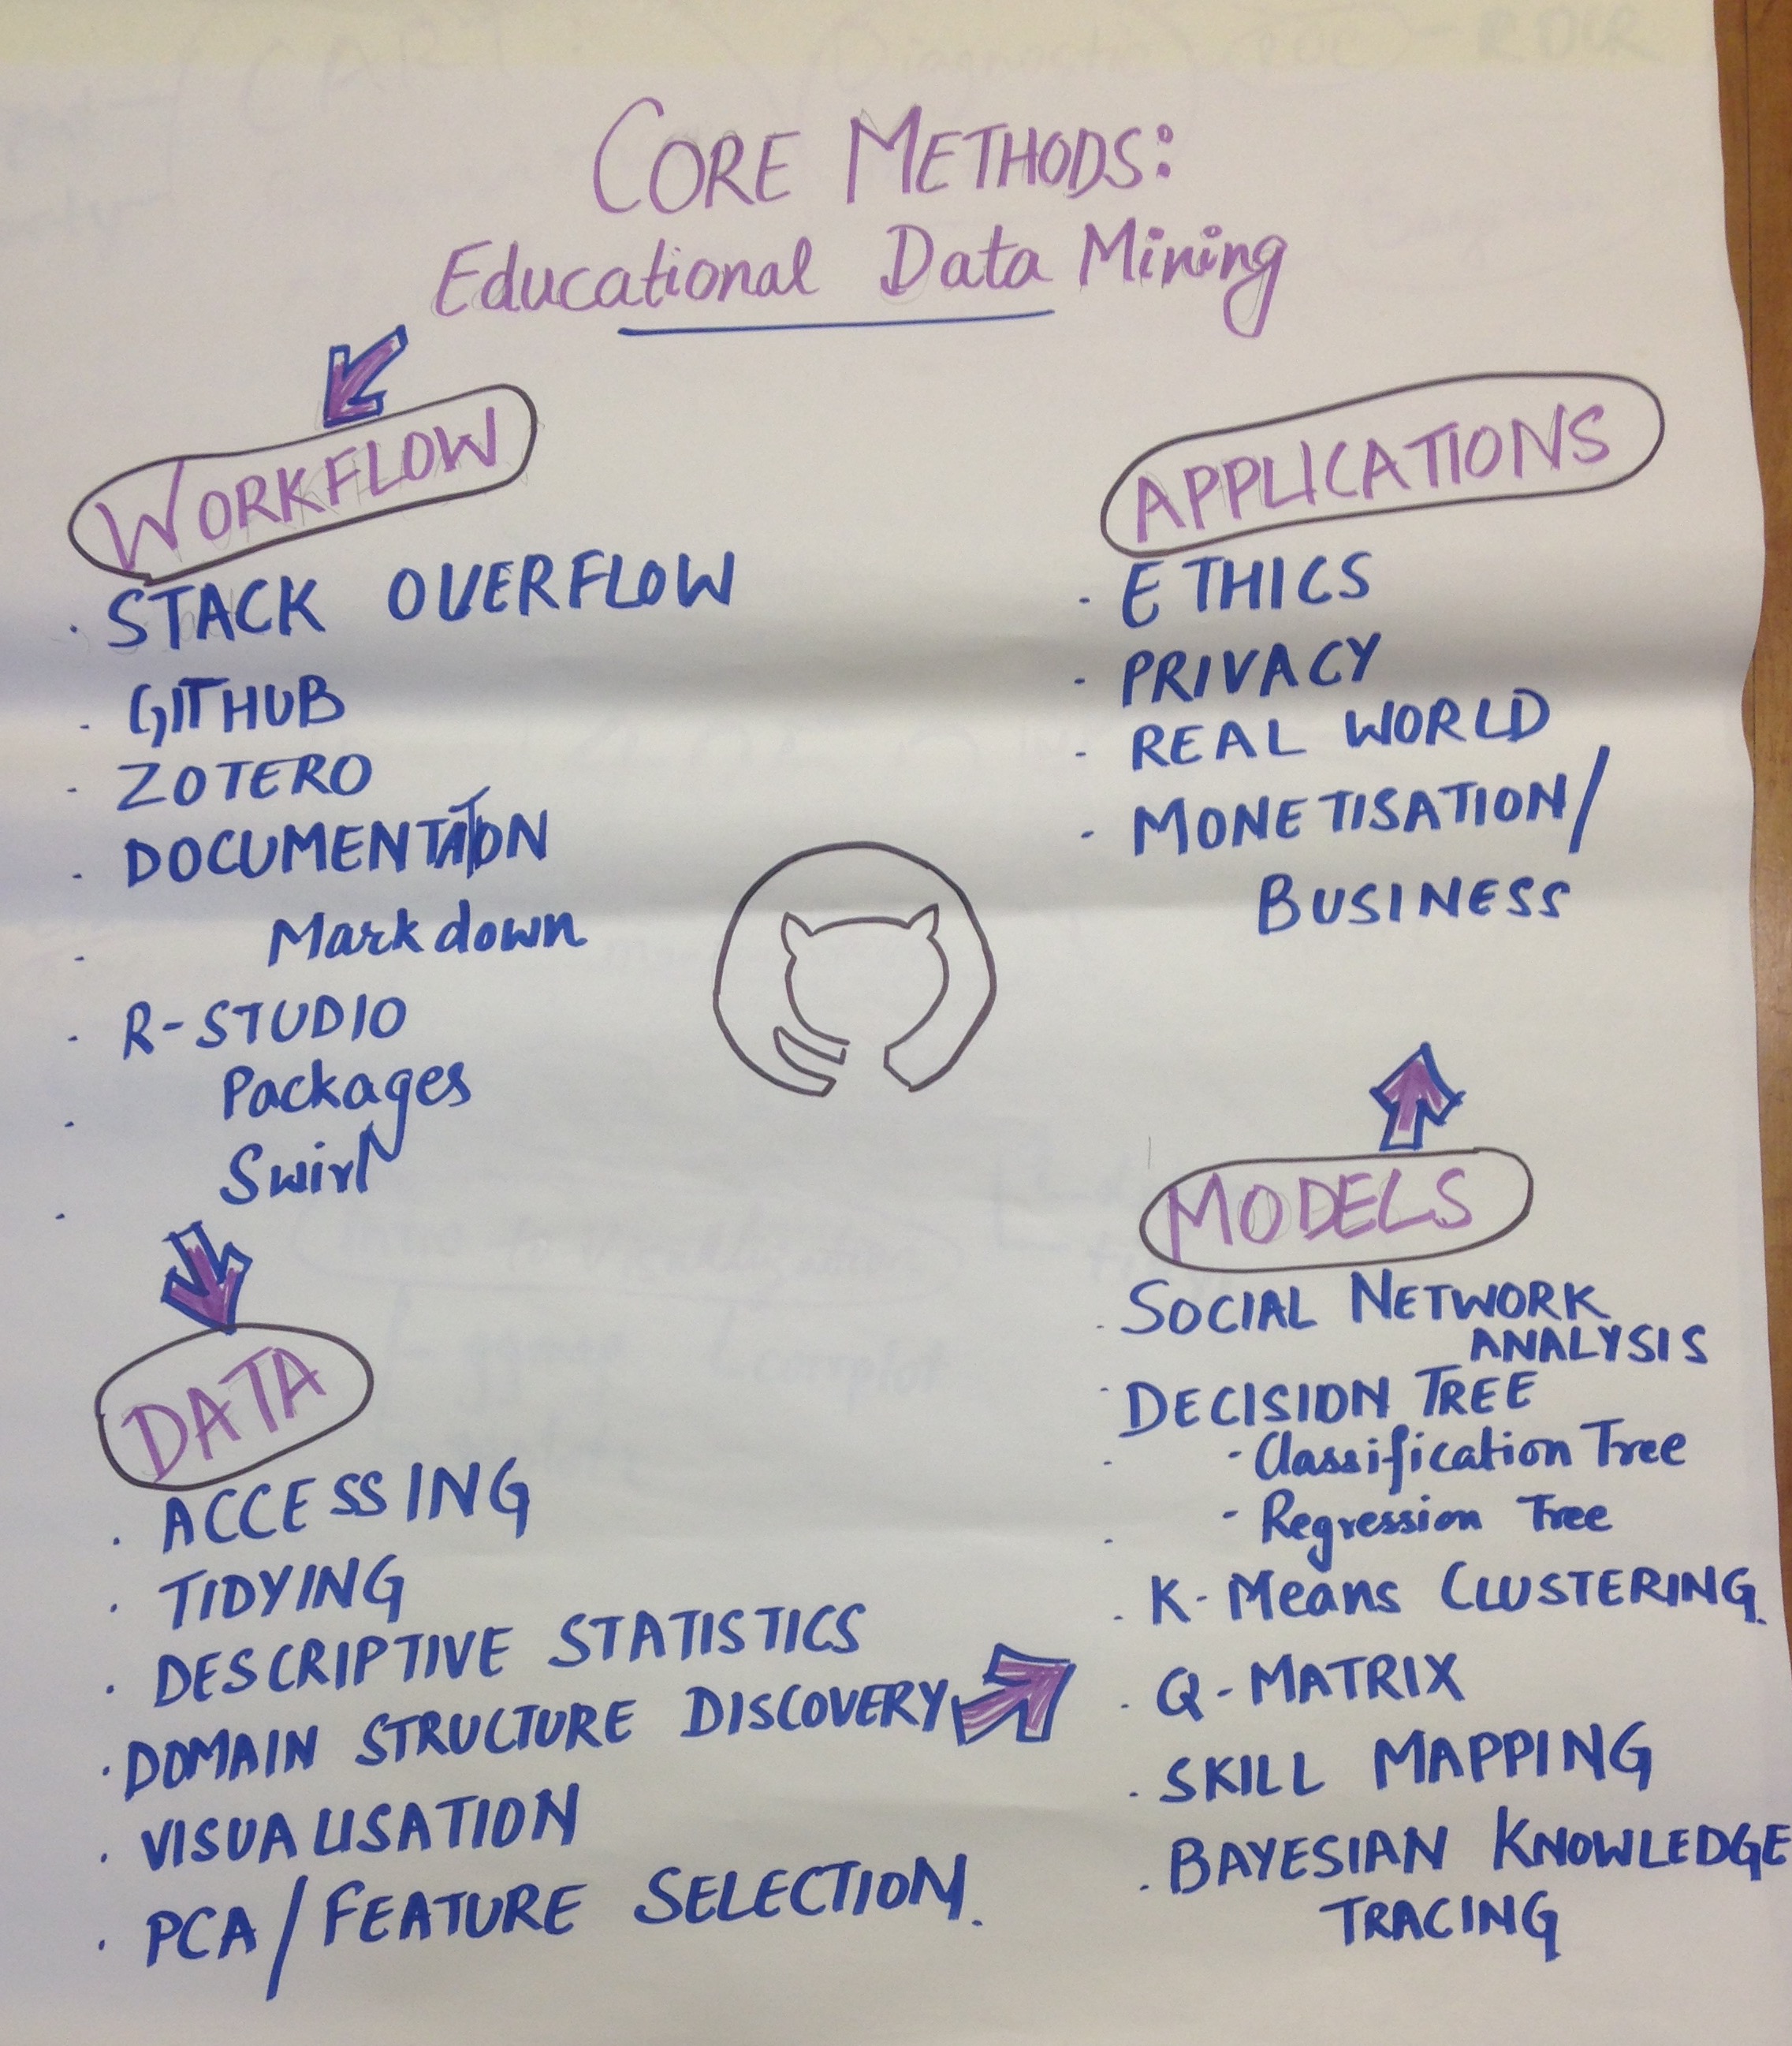 CORE METHODS:
Educational Data Mining
WORKFLOW
· STACK OVERFLOW
· GITHUB
· ZOTERO
· DOCUMENTATION
· Markdown
· R-STUDIO
· Packages
· Swirl
DATA
· ACCESSING
· TIDYING
· DESCRIPTIVE STATISTICS
· DOMAIN STRUCTURE DISCOVERY
· VISUALISATION
· PCA/FEATURE SELECTION.
APPLICATIONS
· ETHICS
· PRIVACY
· REAL WORLD
· MONETISATION/
BUSINESS
MODELS
· SOCIAL NETWORK
ANALYSIS
· DECISION TREE
· - Classification Tree
· - Regression Tree
· K-Means CLUSTERING.
· Q-MATRIX
· SKILL MAPPING
· BAYESIAN KNOWLEDGE
TRACING